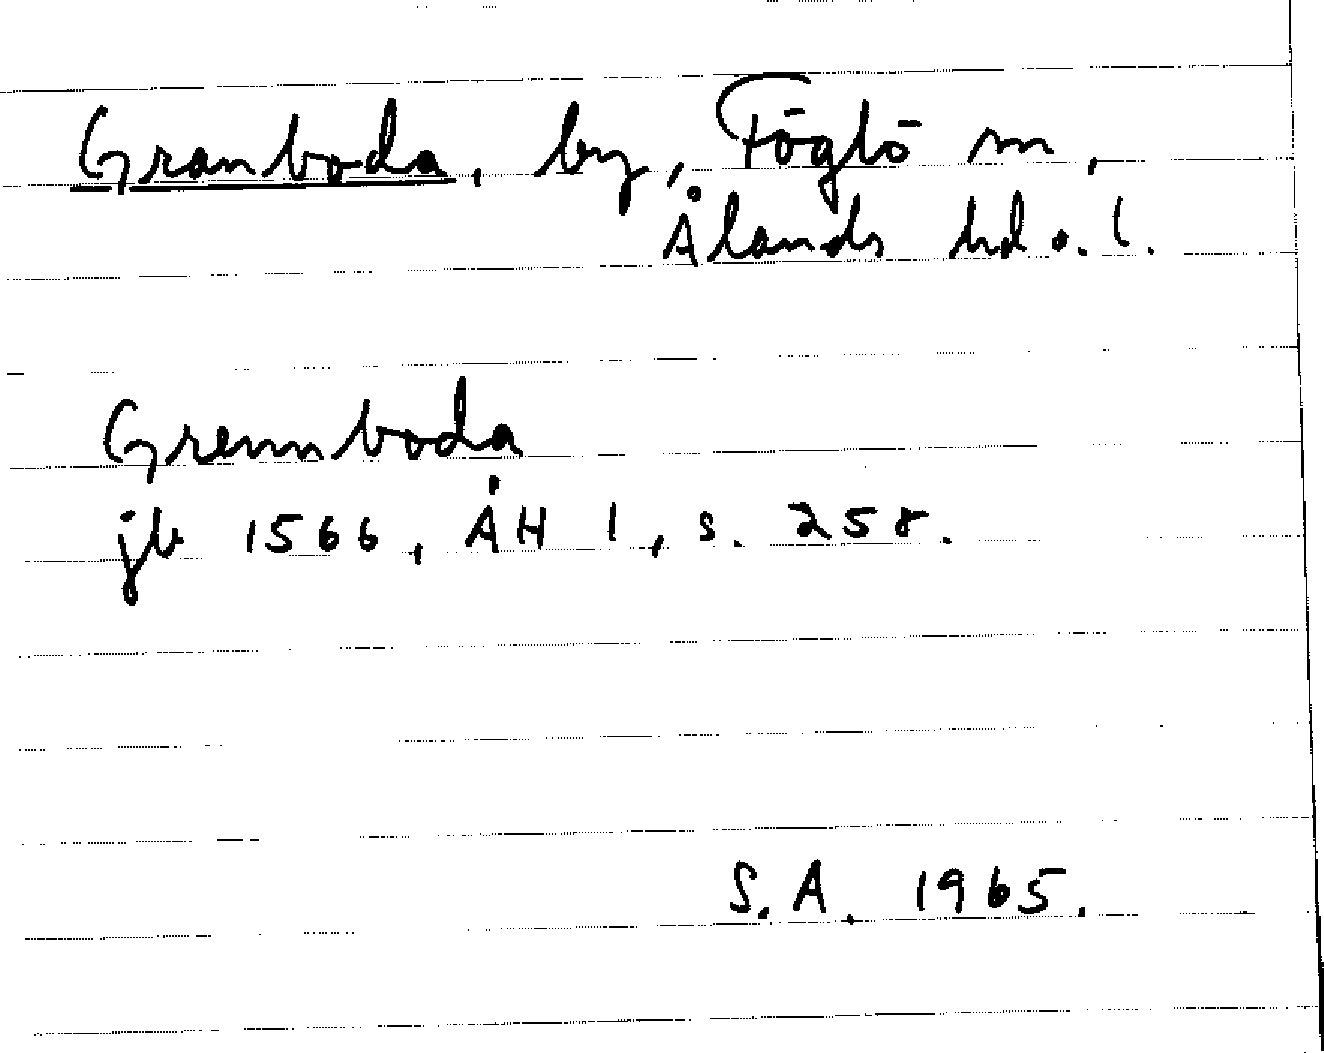 Granboda, by, Föglö sn,
Ålands hd o. l.
Grennboda
jb 1566, ÅH 1, s. 258.
S.A. 1965.